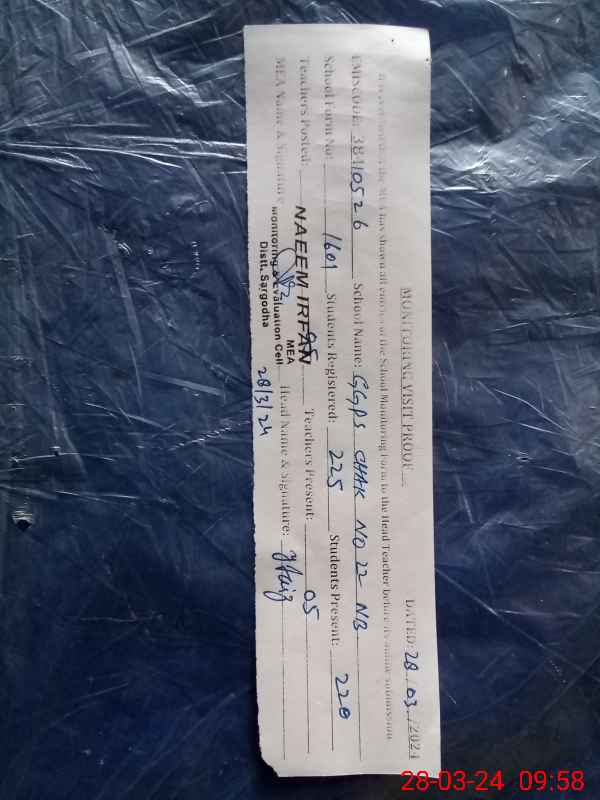 MONITORING VISIT PROOF
DATED: 28/03/2024
the MEA has shown all entries of the School Monitoring Form to the Head Teacher before its online submission
EMISCODE: 38410526 School Name: GGPS CHAK NO 22 NB
School Form No: 1601 Students Registered: 225 Students Present: 220
Teachers Posted: 05 Teachers Present: 05
MEA Name & Signature Head Name & Signature:
NAEEM IRFAN
MEA
Monitoring & Evaluation Cell
Distt. Sargodha
28/3/24
28-03-24 09:58